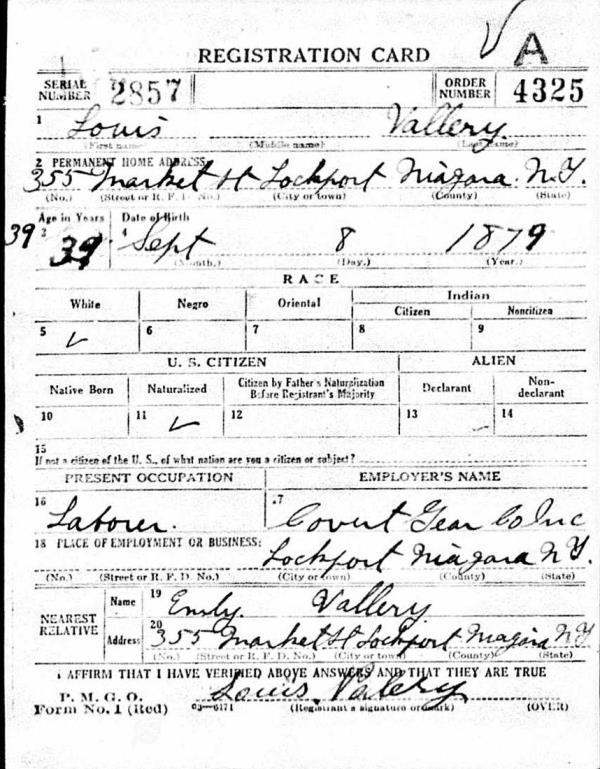 A
REGISTRATION CARD
SERIAL NUMBER 2857 ORDER NUMBER 4325
1 Louis Vallery.
(First name) (Middle name) (Last name)
2 PERMANENT HOME ADDRESS
355 Market St Lockport Niagara. N.Y.
(No.) (Street or R. F. D. No.) (City or town) (County) (State)
Age in Years Date of Birth
39 3 39 4 Sept 8 1879
(Month.) (Day.) (Year.)
RACE
White Negro Oriental Indian
Citizen Noncitizen
5 ✓ 6 7 8 9
U. S. CITIZEN ALIEN
Native Born Naturalized Citizen by Father's Naturalization Before Registrant's Majority Declarant Non-declarant
10 11 ✓ 12 13 14
15
If not a citizen of the U. S., of what nation are you a citizen or subject?
PRESENT OCCUPATION EMPLOYER'S NAME
16 Laborer. 17 Covert Gear Co Inc
18 PLACE OF EMPLOYMENT OR BUSINESS:
Lockport Niagara N.Y.
(No.) (Street or R. F. D. No.) (City or town) (County) (State)
NEAREST RELATIVE Name 19 Emily. Vallery
Address 20 355 Market St Lockport Niagara N.Y
(No.) (Street or R. F. D. No.) (City or town) (County) (State)
I AFFIRM THAT I HAVE VERIFIED ABOVE ANSWERS AND THAT THEY ARE TRUE
P. M. G. O.
Form No. 1 (Red) 03—6171 Louis Valery
(Registrant's signature or mark) (OVER)